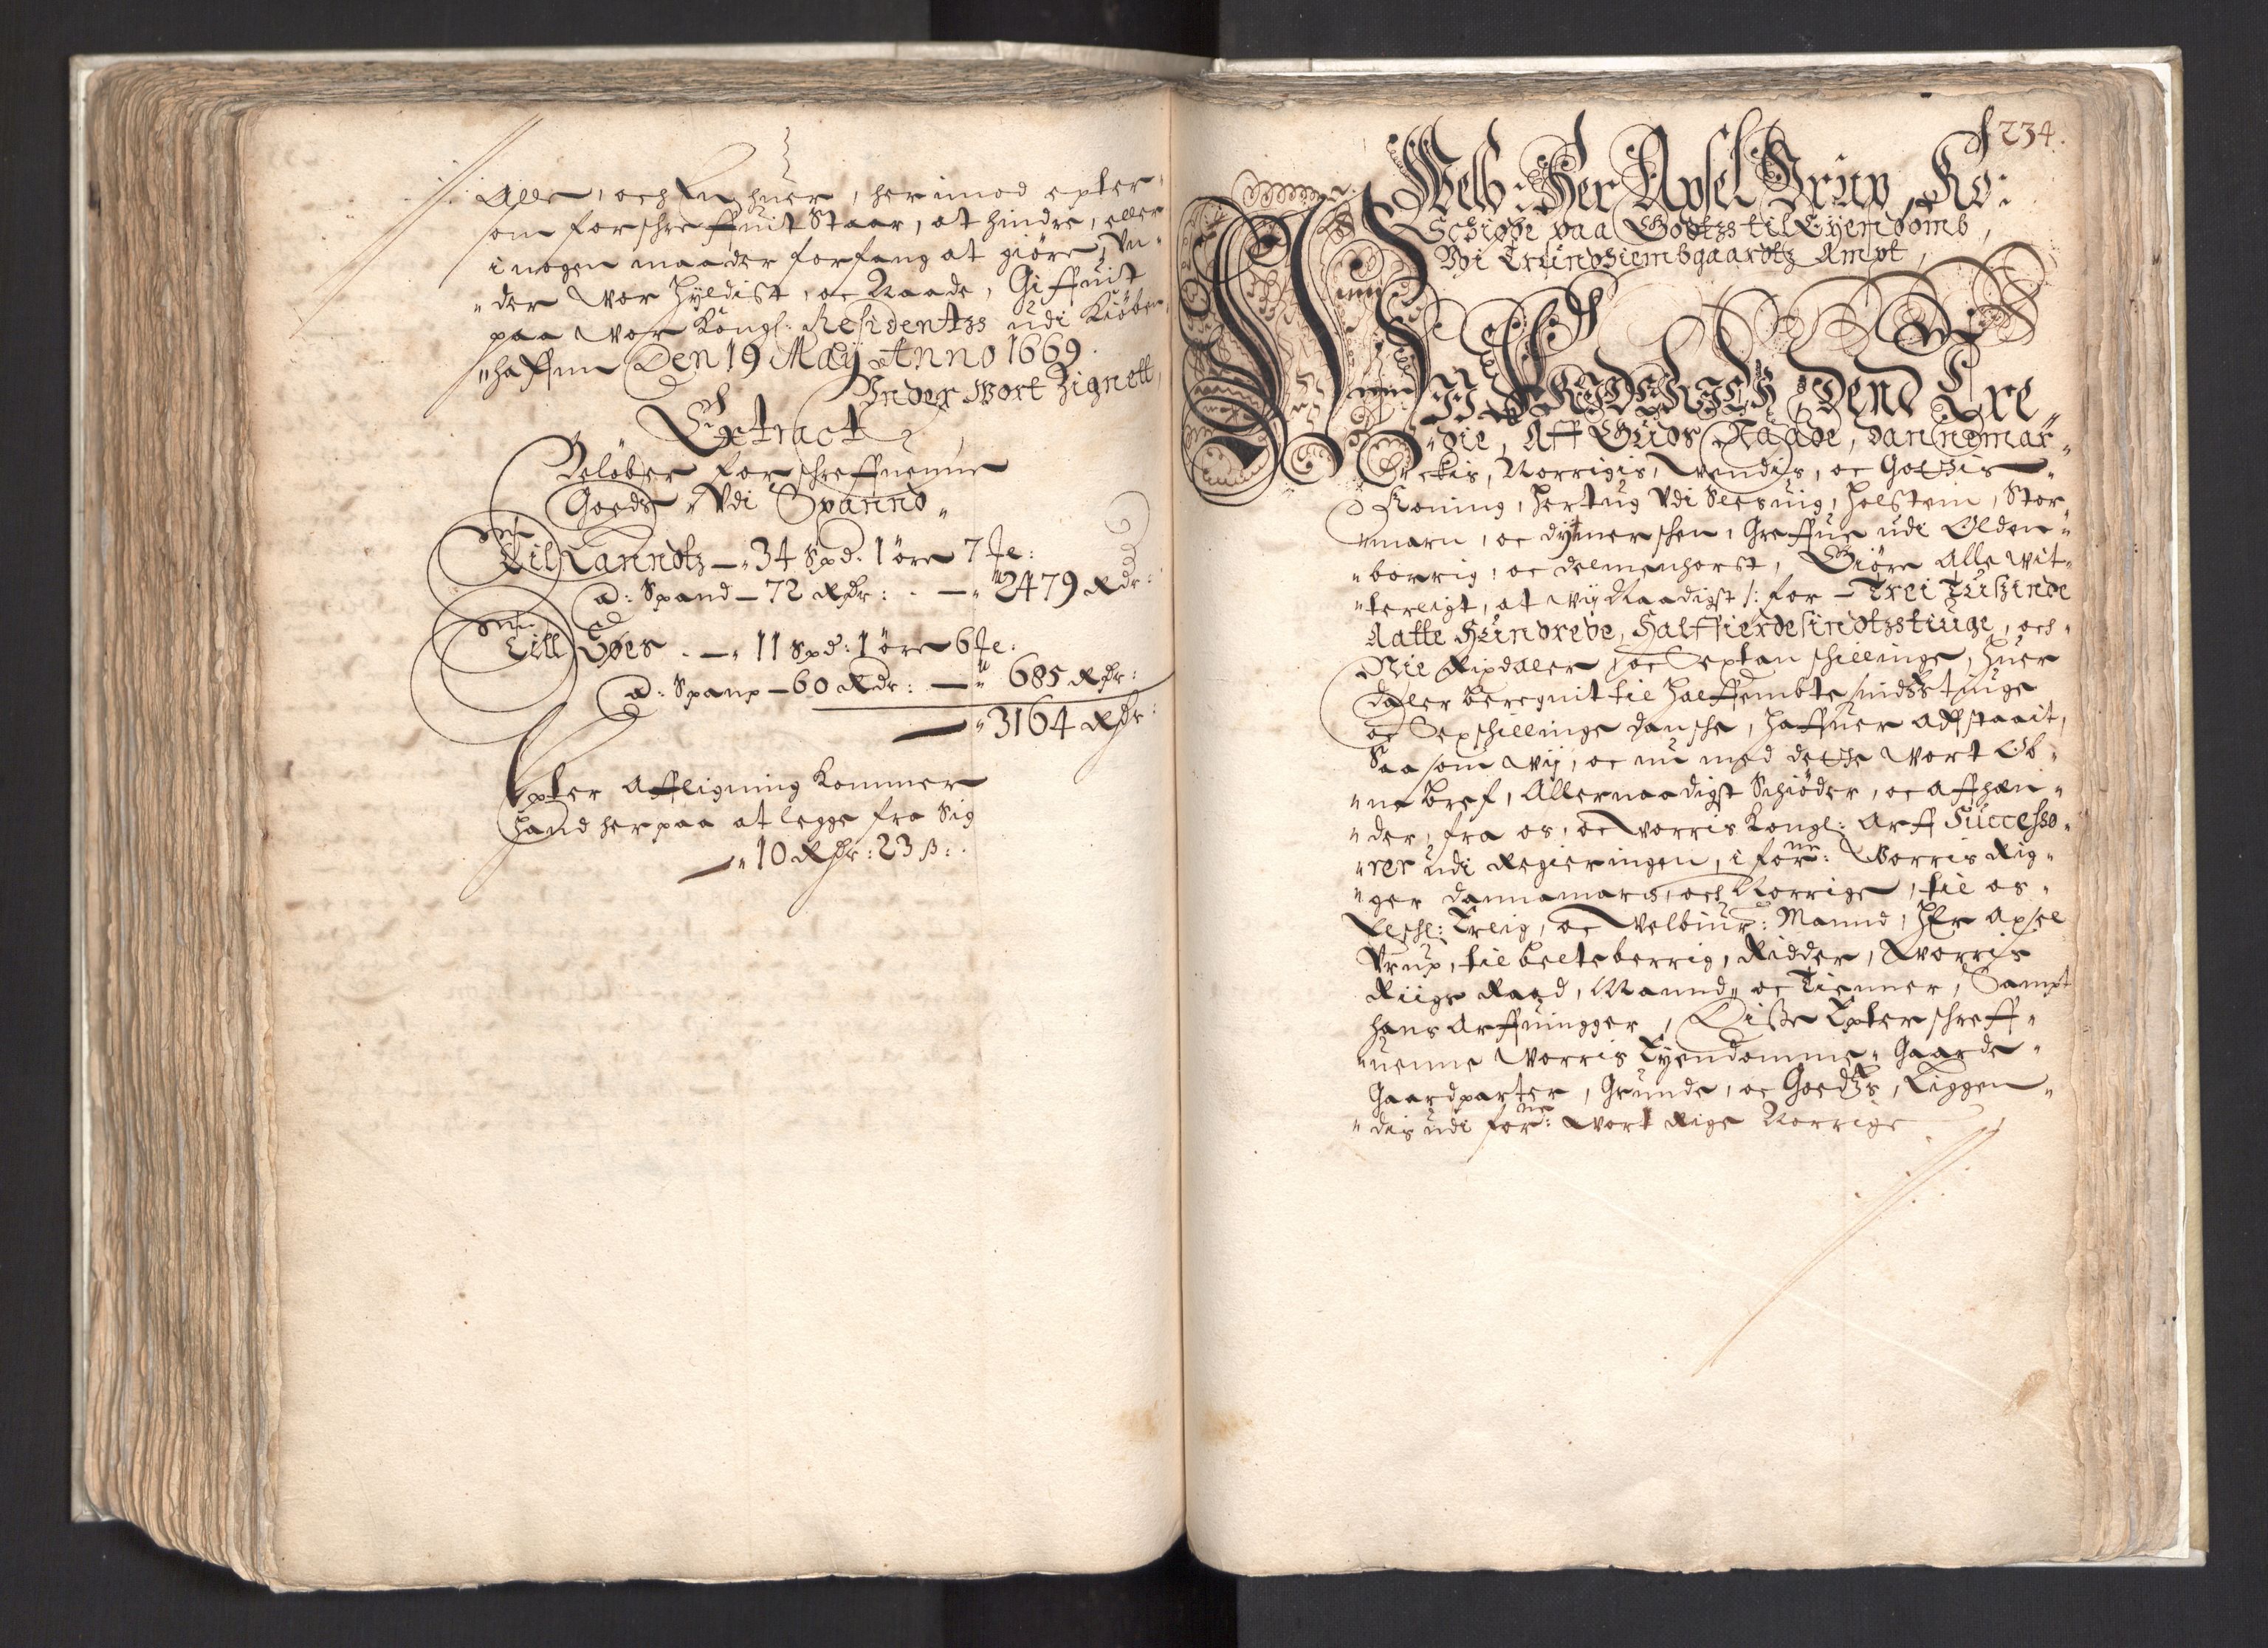 Alle, och En huer, her imod epter¬
som forschreffuit Staar, at hindre, eller
i nogen maader forfang at giöre, Vn¬
der Vor hyldist, oc Naade, Giffuit
paa Vor Kongl: Residentzs udi Kiöben¬
haffnn Den 19 Maij Anno 1669.
Vnder Vort Zignett,
Extract
Beløber forschreffuenne
Goeds, Vdi Spannd,
Til Lanndtz — 34 Spd: 1 öre 7 Je:
a: Spand — 72 Rdr: — 2479 Rdr:
Till Søes — 11 Spd: 1 öre 6 Je:
a: Spanp — 60 Rdr: — 685 Rdr:
— 3164 Rdr:
Epter Affligning Kommer
hand her paa at legge fra Sig
— 10 Rdr: 23 β:
234.
Welb: Her Axsel Vrup, Ko:
Schiøde paa Godtzs til Eyendomb,
Vdi Trundhiembgaardtz Ampt,
Wii FRIDERICH, dend Tre
die, Aff Guds Naade, Dannemar¬
ckis, Norrigis, Wendis, oc Gottis
Koning, Hertug Vdi Slesuig, Holsten, Stor¬
marn, oc Dytmerschen, Greffue udi Olden¬
borrig, oc Delmenhorst, Giöre Alle Wit¬
terligt, at Wij Naadigst /: for — Trei Tusinde
Aatte Hundrede, Halffierdesindtzstiuge, och
Nie Rixdaler, oc Sextan schillinge, Huer
Daler beregnit til Halffembte sindtzstiuge
oc Sex schillinge danske, haffuer Affstaait,
Saasom Wij, oc nu med dette Vort Ob¬
ne bref, Allernaadigst Schiöder, oc Affhæn¬
der, fra os, oc Vorris Kongl: Arff Successo¬
rer udi Regieringen, i forne: Vorris Rig¬
ger Dannamarck, och Norrige, til os
Elschl: Erlig, oc Velbiur: Mannd, Her Axsel
Vrup, til Belteberrig, Ridder, Vorris
Riigs Raad, Mannd, oc Tienner, Sampt
hans Arffuingger, Disse Epterschreff¬
uenne Vorris Eyendomme, Gaarde,
Gaardparter, Grunde, oc Goedtzs, Liggen¬
dis udi forne: Vort Rige Norrige